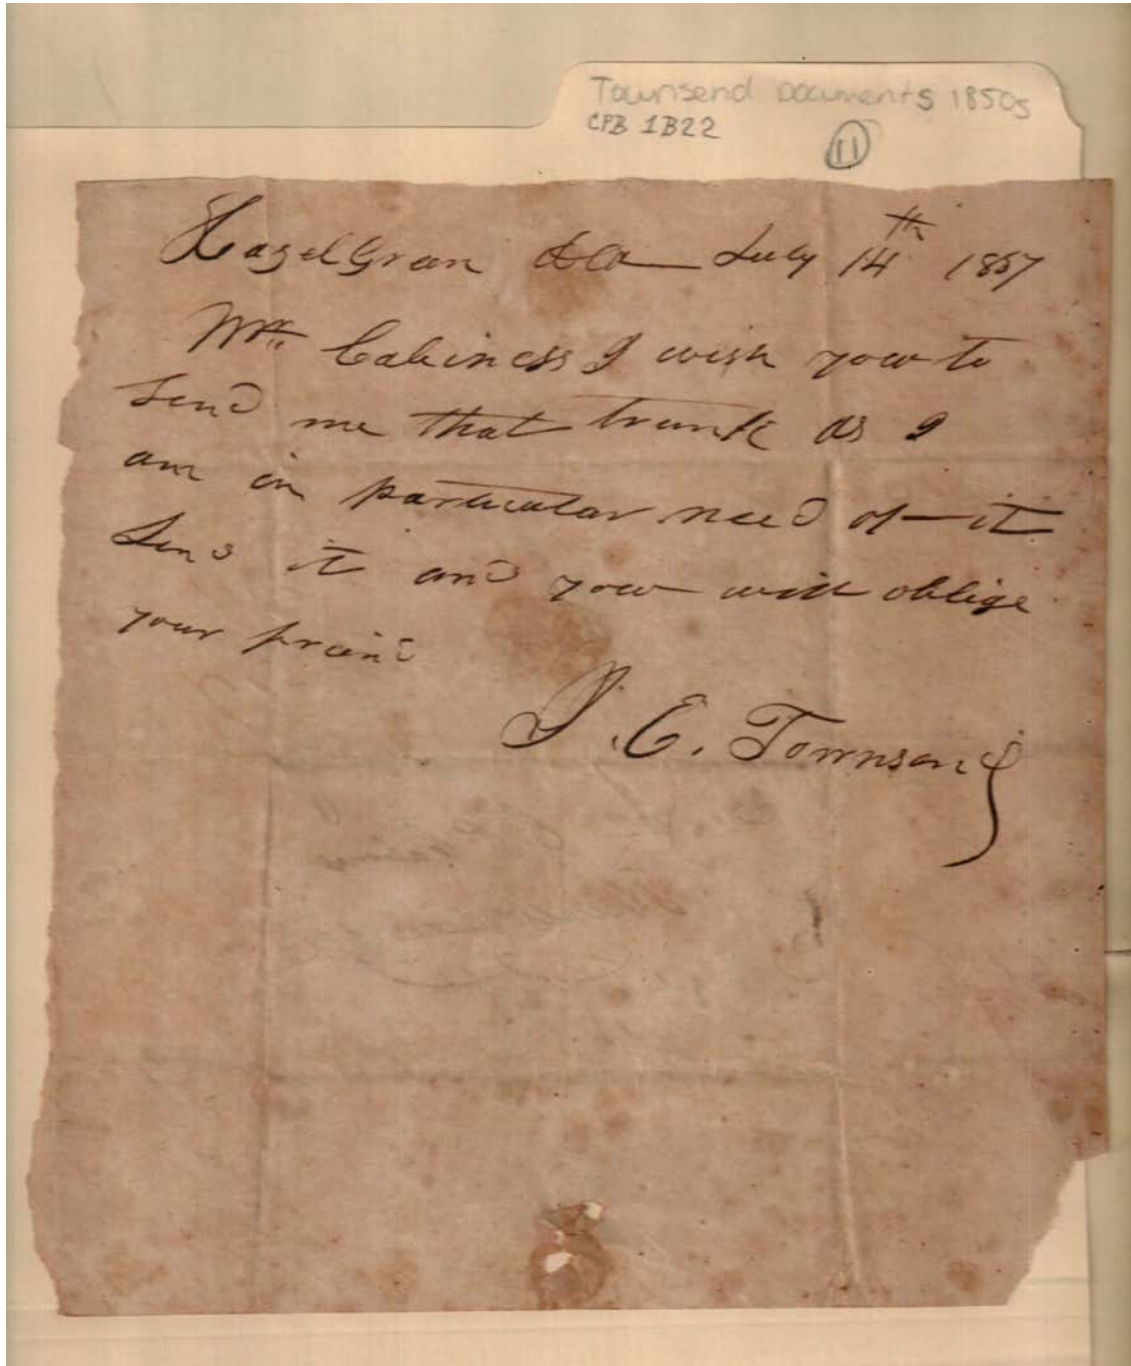 Townsend Documents 1850s
CPB 1B22
11
Hazel Green Ala July 14th 1857
Mr. Cabiness I wish you to
send me that trunk as I
am in particular need of it
Send it and you will oblige
your freind
S. E. Townsend